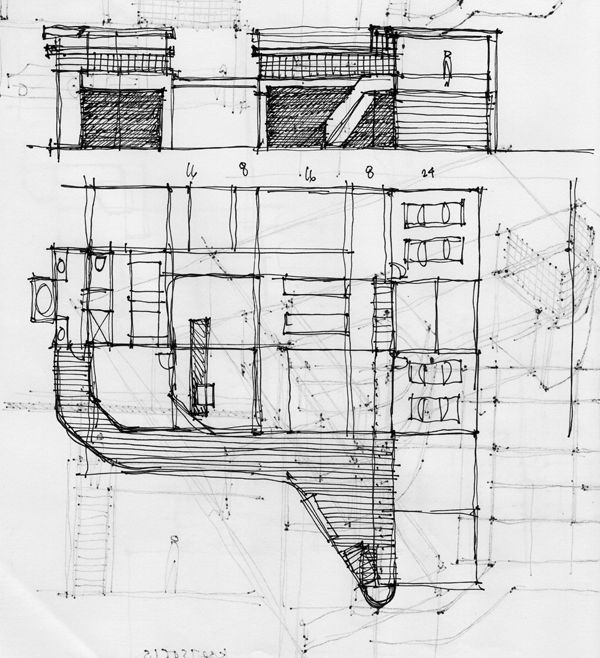 16 8 16 8 24